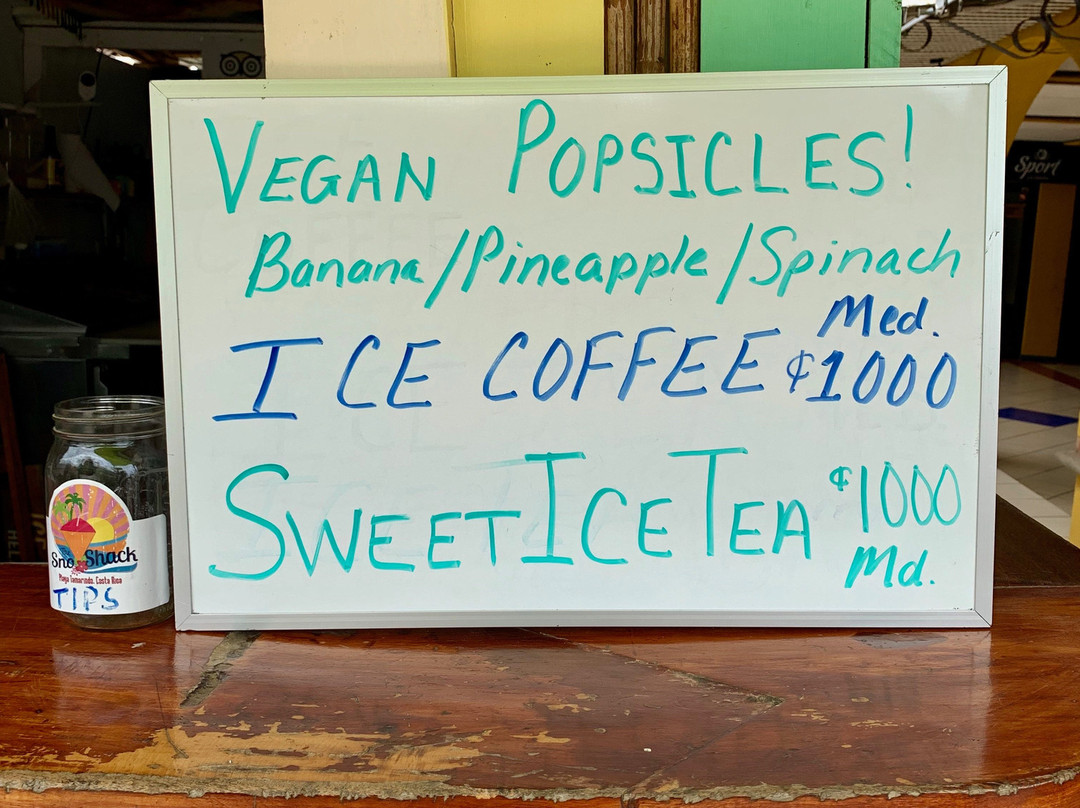 VEGAN POPSICLES!
Banana/Pineapple/Spinach
Med.
ICE COFFEE ¢1000
SWEET ICE TEA ¢1000
Md.
Sno Shack
Playa Tamarindo, Costa Rica
TIPS
Sport